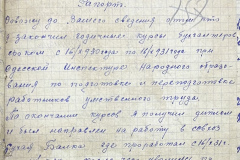 Рапорт.
Довожу до Вашего сведения что
я закончил годичные курсы бухгалтеров
сроком с 16/X 930 года по 16/X 931 года при
Одесской Инспектуре Народного образо-
вания по подготовке и переподготовке
работников умственного труда.
По окончании курсов я получил диплом
и был направлен на работу в совхоз
Балка где проработал с 16/X 31 г.